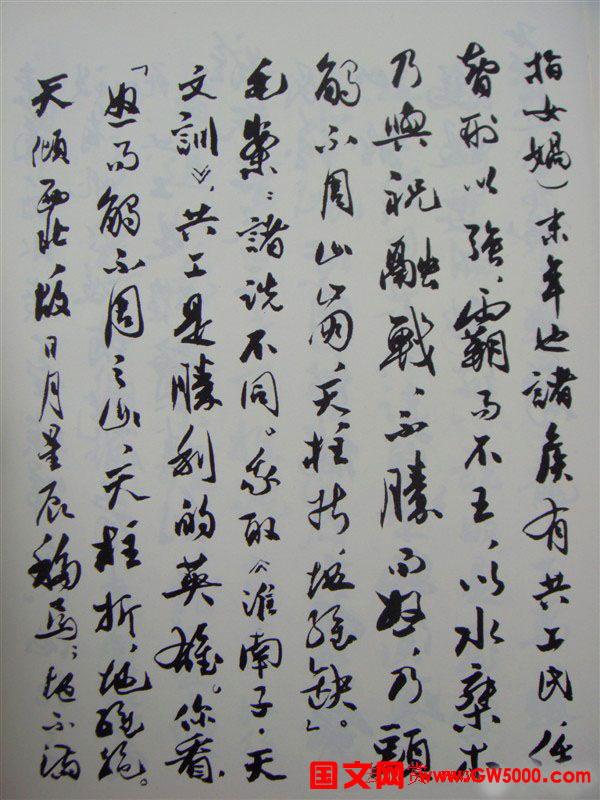 指女娲）末年也諸侯有共工氏任
智刑以強、霸而不王、以水乘木
乃與祝融戰、不勝而怒、乃頭
觸不周山崩、天柱折地維缺」。
毛案：諸说不同。我取《淮南子·天
文訓》，共工是勝利的英雄。你看，
「怒而觸不周之山、天柱折，地維絕。
天傾西北故日月星辰移焉；地不满
国文网 www.GW5000.com